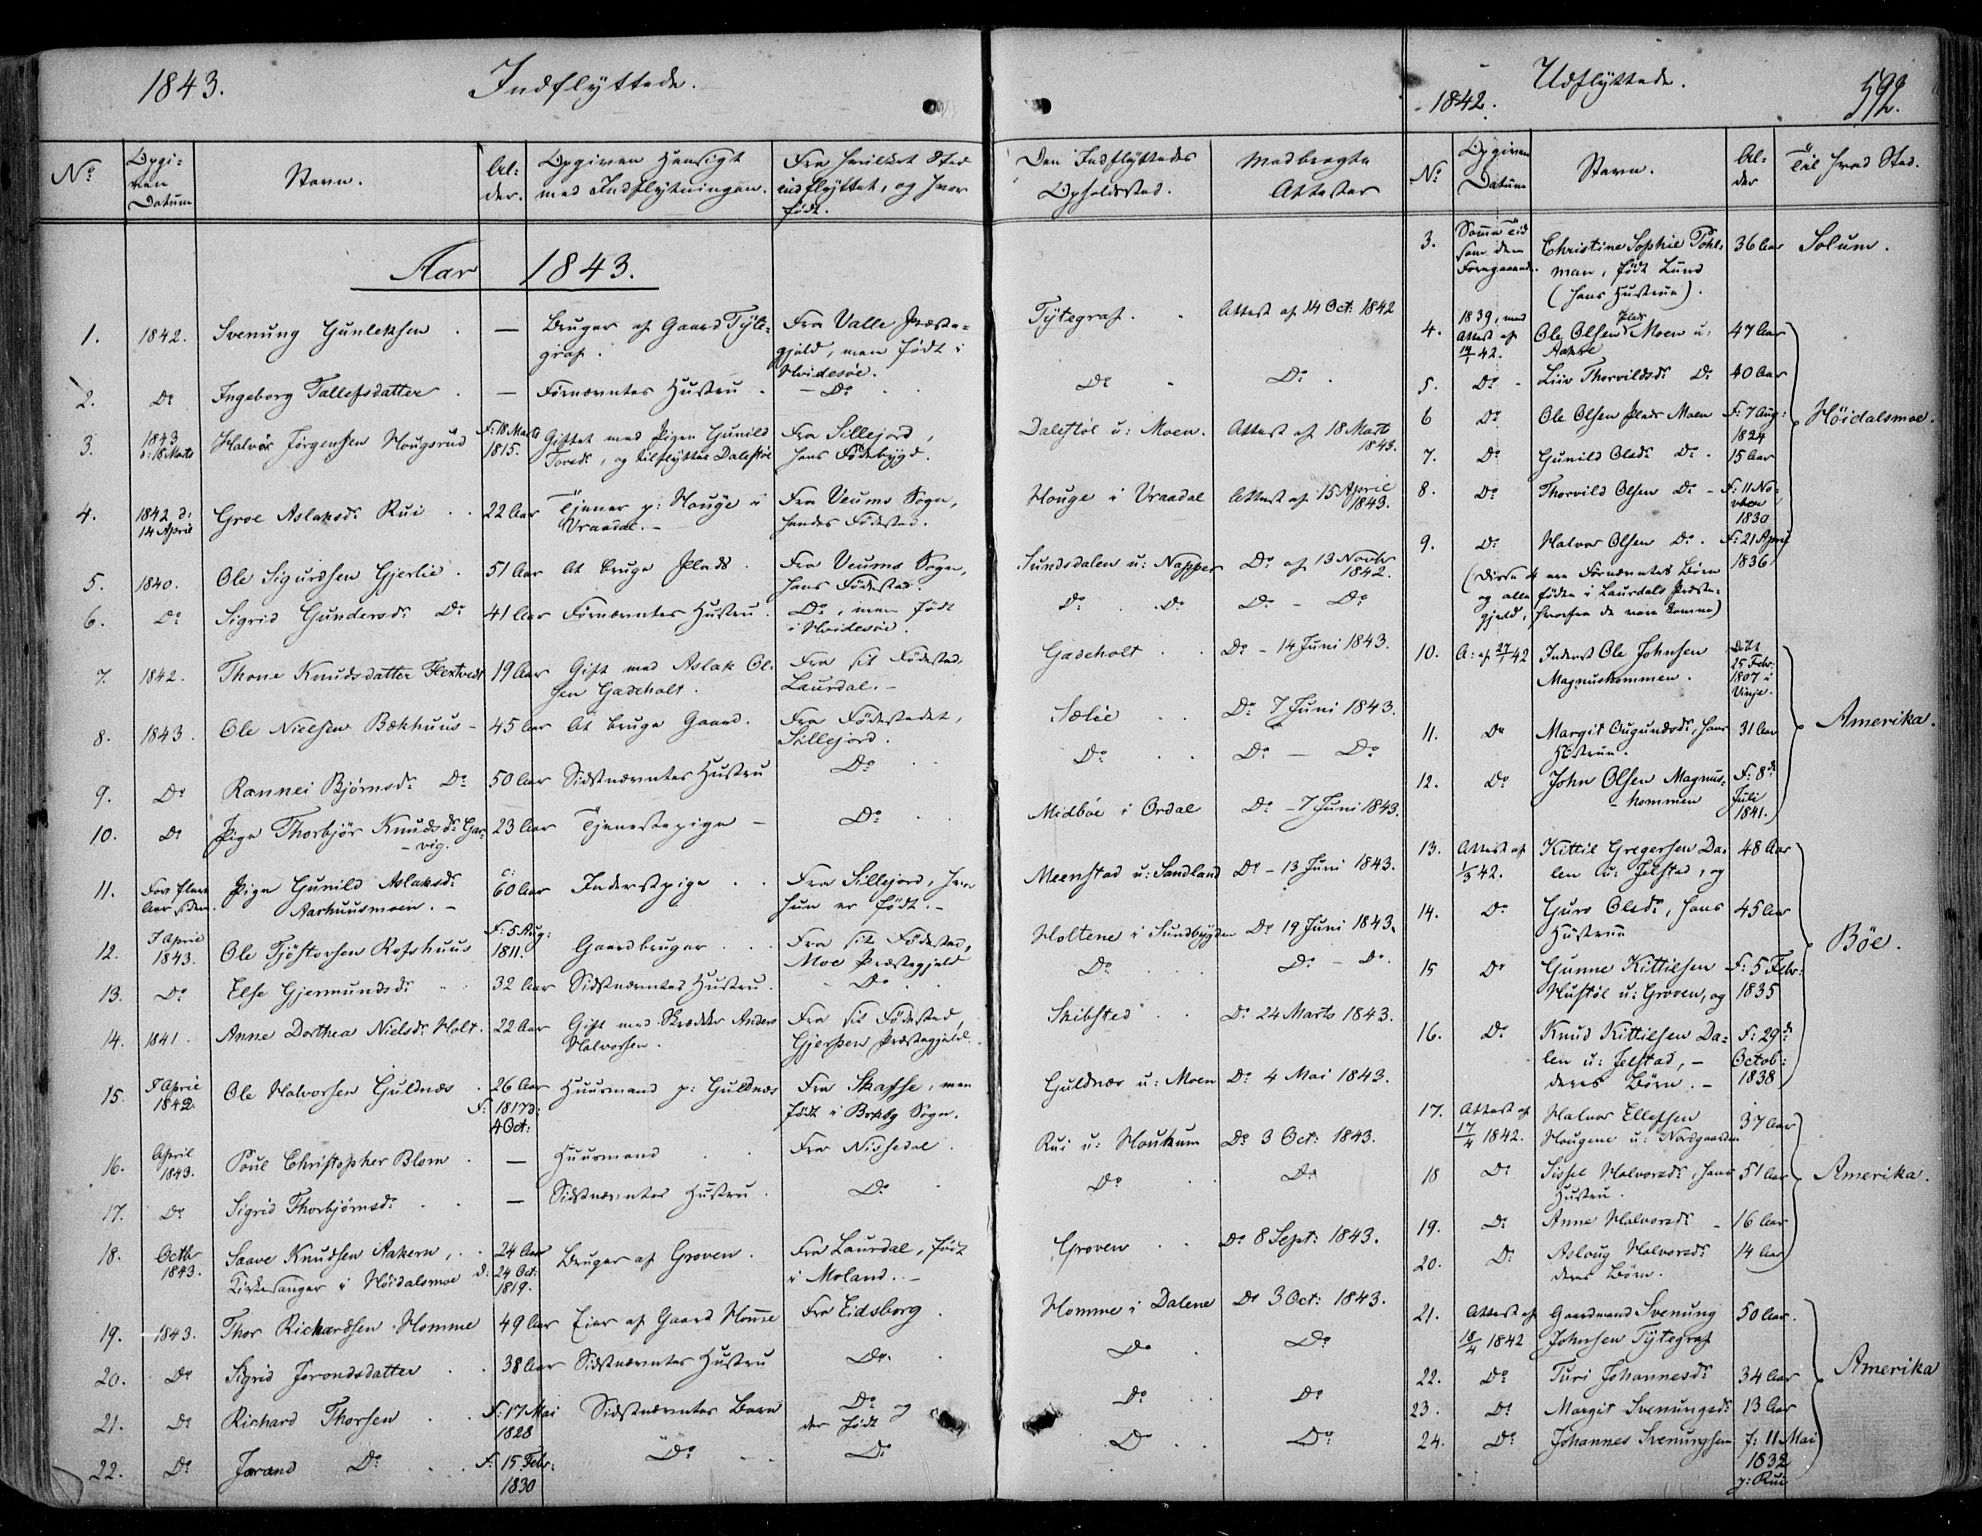 1843.
Indflyttede.
No
Opgi-
ven
Datum
Navn.
Al-
der.
Opgiven Hensigt
med Indflytningen.
Fra hvilket Sted
indflyttet, og hvor
født.
Den Indflyttedes
Opholdssted.
Medbragte
Attester
Aar 1843.
1. 1842. Svenung Gunleksen — Bruger af Gaard Tÿte-
graf.
Fra Valle Præste-
gjeld, men født i
Hvidesøe.
Tÿtegraf. Attest af 14 Oct: 1842
2. Do Ingeborg Tallefsdatter — Førnævntes Hustru — Do
Do Do
3. 1843
d: 18 Marts
Halvor Jørgensen Hougsrud
F: 18 Marts
1815.
Giftet med Pigen Gunild
Toveds:, og tilflyttet Dalestøl
Fra Sillejord,
hans Fødebÿgd.
Dalestøl u: Moen. Attest af 18 Marts
1843.
4. 1842 d:
14 April
Groe Aslaksd: Rui 22 Aar Tjener p: Houge i
Vraadal.
Fra Veums Sogn,
hendes Fødested.
Houge i Vraadal Attest af 15 April
1843.
5. 1840. Ole Sigurdsen Gjerlie. 51 Aar At bruge Plads. Fra Veums Sogn,
hans Fødested.
Sundsdalen u: Napper Do af 13 Novbr
1842.
6. Do Sigrid Gundersd: Do 41 Aar Førnævntes Hustru. Do, men født
i Hvidesøe.
Do. Do Do – Do
7. 1842. Thone Knudsdatter Flextvedt 19 Aar Gift med Aslak Ol-
sen Gadeholt.
Fra sit Fødested,
Laurdal.
Gadeholt Do – 14 Juni 1843.
8. 1843. Ole Nielsen Bækhuus 45 Aar At bruge Gaard. Fra Fødestedet,
Sillejord.
Sælie Do 7 Juni 1843.
9. Do Rannei Bjørnsd: Do 50 Aar Sidstnævntes Hustru Do
Do Do – Do
10. Do Pige Thorbjør Knudsd: Gar-
vig.
23 Aar Tjenestepige – Do
Midbøe i Ordal Do – 7 Juni 1843.
11. For flere
Aar siden.
Pige Gunild Aslaksd:
Aarhuusmoen. –
60 Aar Inderstpige Fra Sillejord, hvor
hun er født. –
Meenstad u: Sandland Do – 13 Juni 1843.
12. I April
1843.
Ole Tjøstorsen Rofshuus
F: 5 Aug:
1811.
Gaardbruger Fra sit Fødested,
Moe Præstegjeld
Holtene i Sundbÿgden Do 19 Juni 1843.
13. Do Else Gjermundsd: 32 Aar Sidstnævntes Hustru. Do
Do Do – Do
14. 1841. Anne Dorthea Nielsd: Holt. 22 Aar Gift med Skrædder Anders
Halvorsen.
Fra sit Fødested,
Gjerpen Præstegjeld.
Skibsted Do 24 Marts 1843.
15. I April
1842.
Ole Halvorsen Guldnæs 26 Aar
F: 1817 d:
4 Oct:
Huusmand p: Guldnæs Fra Skafse, men
født i Brkbg Sogn.
Guldnæs u: Moen Do 4 Mai 1843.
16. April
1843.
Poul Christopher Blom — Huusmand Fra Nissedal
Rui u: Houkum Do 3 Oct: 1843.
17. Do Sigrid Thorbjørnsd: — Sidstnævntes Hustru. Do
Do Do
18. Octbr
1843.
Saave Knudsen Aakern,
Kirkesanger i Høidalsmoe
24 Aar
d: 24 Oct:
1819.
Bruger af Groven. Fra Laurdal, født
i Moland.
Groven Do 8 Sept: 1843.
19. 1843. Thor Richardsen Homme 49 Aar Eier af Gaard Homme Fra Eidsborg
Homme i Dalene Do 3 Oct: 1843.
20. Do Sigrid Jorondsdatter 38 Aar Sidstnævntes Hustru Do.
Do Do
21. Do Richard Thorsen
F: 17 Mai
1828
Sidstnævntes Barn Do og
der født
Do Do
22. Do Jorand Do
F: 15 Febr:
1830
Do Do
Do Do
1842.
Udflyttede.
592.
No
Opgiven
Datum
Navn.
Al-
der
Til hvad Sted.
3. Samme Tid
som den
Foregaaende.
Christine Sophie Pohl-
man, født Lund
(hans Hustrue).
36 Aar Solum.
4. 1839, med
Attest af
14/1 42.
Ole Olsen Plds Moen u:
Aakre
47 Aar
5. Do Liiv Thorvildsd: Do 40 Aar
6 Do Ole Olsen Plads Moen F: 7 Aug:
1824
Høidalsmoe.
7. Do Gunild Olsd: Do. 15 Aar
8. Do Thorvild Olsen Do – F: 11 No-
vber
1830
9. Do Halvor Olsen Do. F: 21 April
1836
(disse 4 ere Førnævntes Børn
og alle fødte i Laurdals Præste-
gjeld, hvorfra de vare komne)
10. A: af 27/1 42 Inderst Ole Johnsen
Magnuskommen.
Døbt
25 Febr.
1807 i
Vinje.
11. Do Margit Ougundsd:, hans
Hustrue.
31 Aar
Amerika.
12. Do John Olsen Magnus-
kommen
F: 8de
Juli
1841.
13. Attest af
1/3 42.
Kittil Gregersen Da-
len u: Jelstad, og
48 Aar
14. Do Guro Olsd:, hans
Hustrue
45 Aar
Bøe.
15 Do Gunne Kittilsen
Hustøl u: Groven, og
F: 5 Febr:
1835
16. Do Knud Kittilsen Da-
len u: Jelstad, –
deres Børn. –
F: 29de
Octob:
1838
17. Attest af
17/4 1842.
Halvor Ellefsen
Hougene u: Nordgaarden
37 Aar
18 Do Sissel Halvorsd:, hans
Hustru.
51 Aar
Amerika.
19. Do Anne Halvorsd: – 16 Aar
20. Do Aslaug Halvorsd:
deres Børn.
14 Aar
21. Attest af
18/4 1842
Gaardmand Svenung
Johnsen Tÿtegraf
50 Aar.
22. Do Turi Johannesd: 34 Aar
Amerika
23. Do Margit Svenungsd: 13 Aar
24. Do Johannes Svenungsen f: 11 Mai
1832
p: Rui